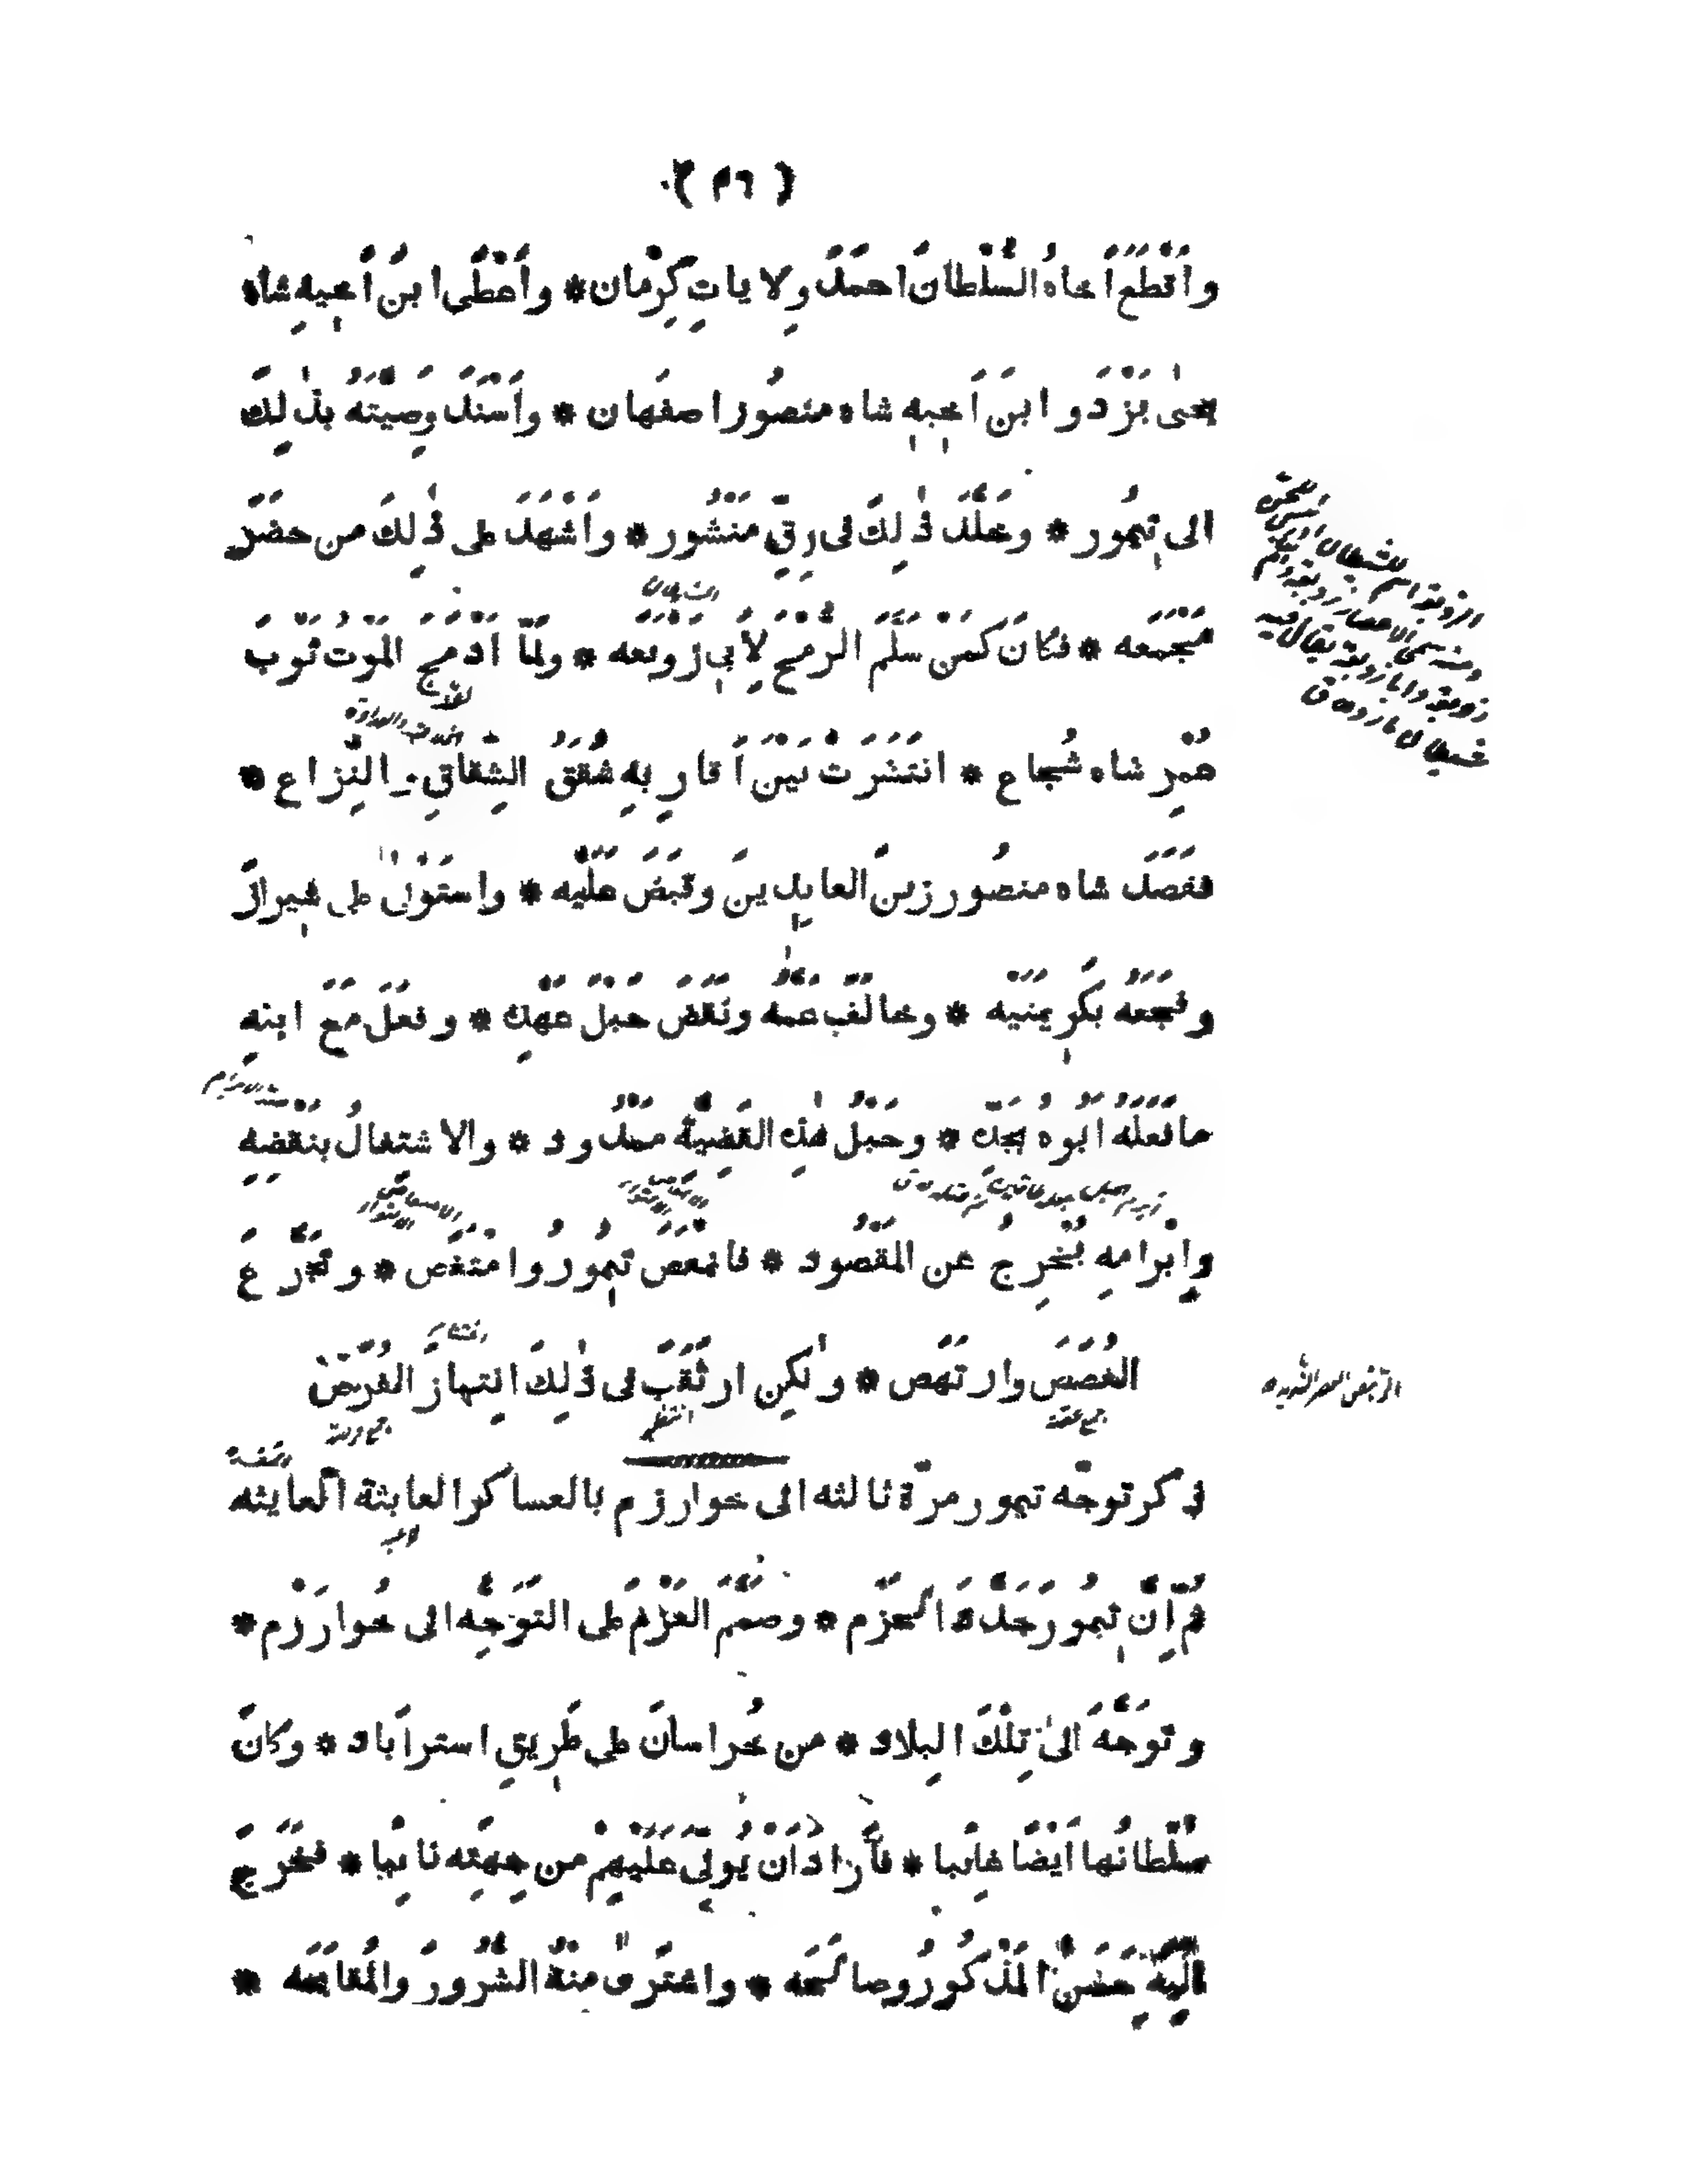 ( ٣٦ )
وأَقْطَعَ أَخاهُ السُّلْطانَ احمَدَ وِلاياتِ كِرْمان * وأَعْطَى ابنَ أَخِيهِ شاه
يحيٰى يَزْدَ وابنَ أَخِيهِ شاه منصُور اصفَهان * وأَسْنَدَ وَصِيَّتَهُ بذٰلِكَ
الى تِيمُور * وخَلَّدَ ذٰلِكَ فى رِقٍّ مَنْشُور * وأَشْهَدَ على ذٰلِكَ من حضَرَ
مَجْمَعَه * فكانَ كمَنْ سَلَّمَ الرُّمْحَ لِأَبى زَوْبَعه * ولَمّا أَدْمَجَ المَوْتُ ثَوْبَ
الشيطان
عُمْرِ شاه شُجاع * انتَشَرَتْ بَيْنَ أَقارِبِهِ شُقَقُ الشِّقاقِ والنِّزاع *
فقَصَدَ شاه منصُور زينَ العابِدينَ وقبَضَ عَلَيْه * واستَوْلٰى على شِيرازَ
وفَجَعَهُ بكَرِيمَتَيْه * وخالَفَ عمَّهُ ونَقَضَ حَبْلَ عَهْدِه * وفعَلَ مَعَ ابنِهِ
ما فَعَلَهُ أَبُوهُ بجَدِّه * وحَبْلُ هٰذِهِ القَضِيَّةِ ممْدُود * والاشتغالُ بنَقْضِهِ
وإِبْرامِهِ يُخْرِجُ عن المَقْصُود * فامْتَعَصَ تِيمُورُ وامْتَغَص * وتَجَرَّعَ
الغُصَصَ وارتَهَص * ولٰكِن ارتَقَبَ فى ذٰلِكَ انتِهازَ الفُرَص
انتظر
جمع غصة
جمع فرصة
ذكر توجّه تيمور مرّة ثالثه الى خوارزم بالعساكر العابثة العايثه
ثُمَّ إِنَّ تِيمُور جَدَّدَ الحَزْم * وصَمَّمَ العَزْمَ على التَوَجُّه الى خُوارَزْم *
وتوَجَّهَ الىٰ تِلْكَ البِلاد * من خُراسانَ على طَرِيقِ استراَباد * وكانَ
سُلْطانُها أَيْضًا غائِبا * فأَرادَ أَنْ يُوَلِّىَ عَلَيْهِمْ من جِهَتِه نائِبا * فخَرَجَ
إِلَيْهِ حَسَنُ المَذْكُورُ وصالَحَه * واشتَرٰى مِنْهُ الشُّرُورَ والمُقابَحَه *